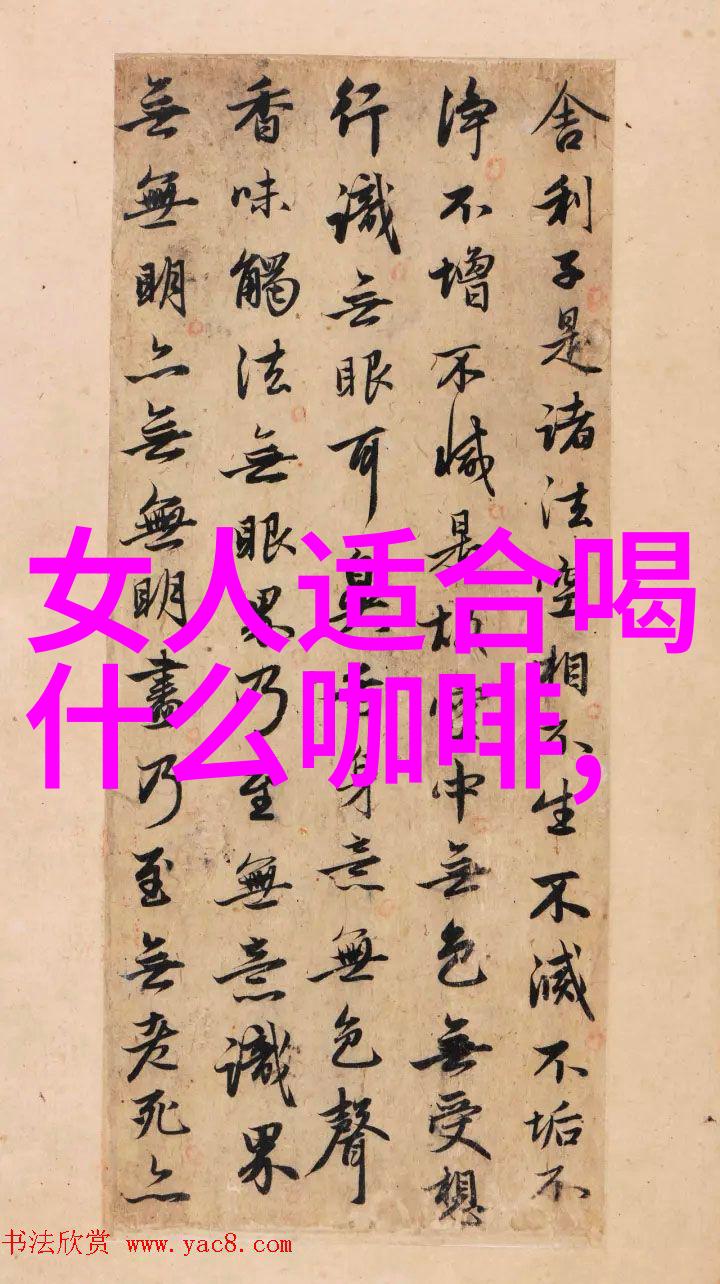 舍利子是諸法空相不生不滅不垢不
淨不增不減是故空中無色無受想
行識無眼耳鼻舌身意無色聲
香味觸法無眼界乃至無意識界
無無明亦無無明盡乃至無老死亦
女人适合喝
什么咖啡,
书法欣赏 www.yac8.com